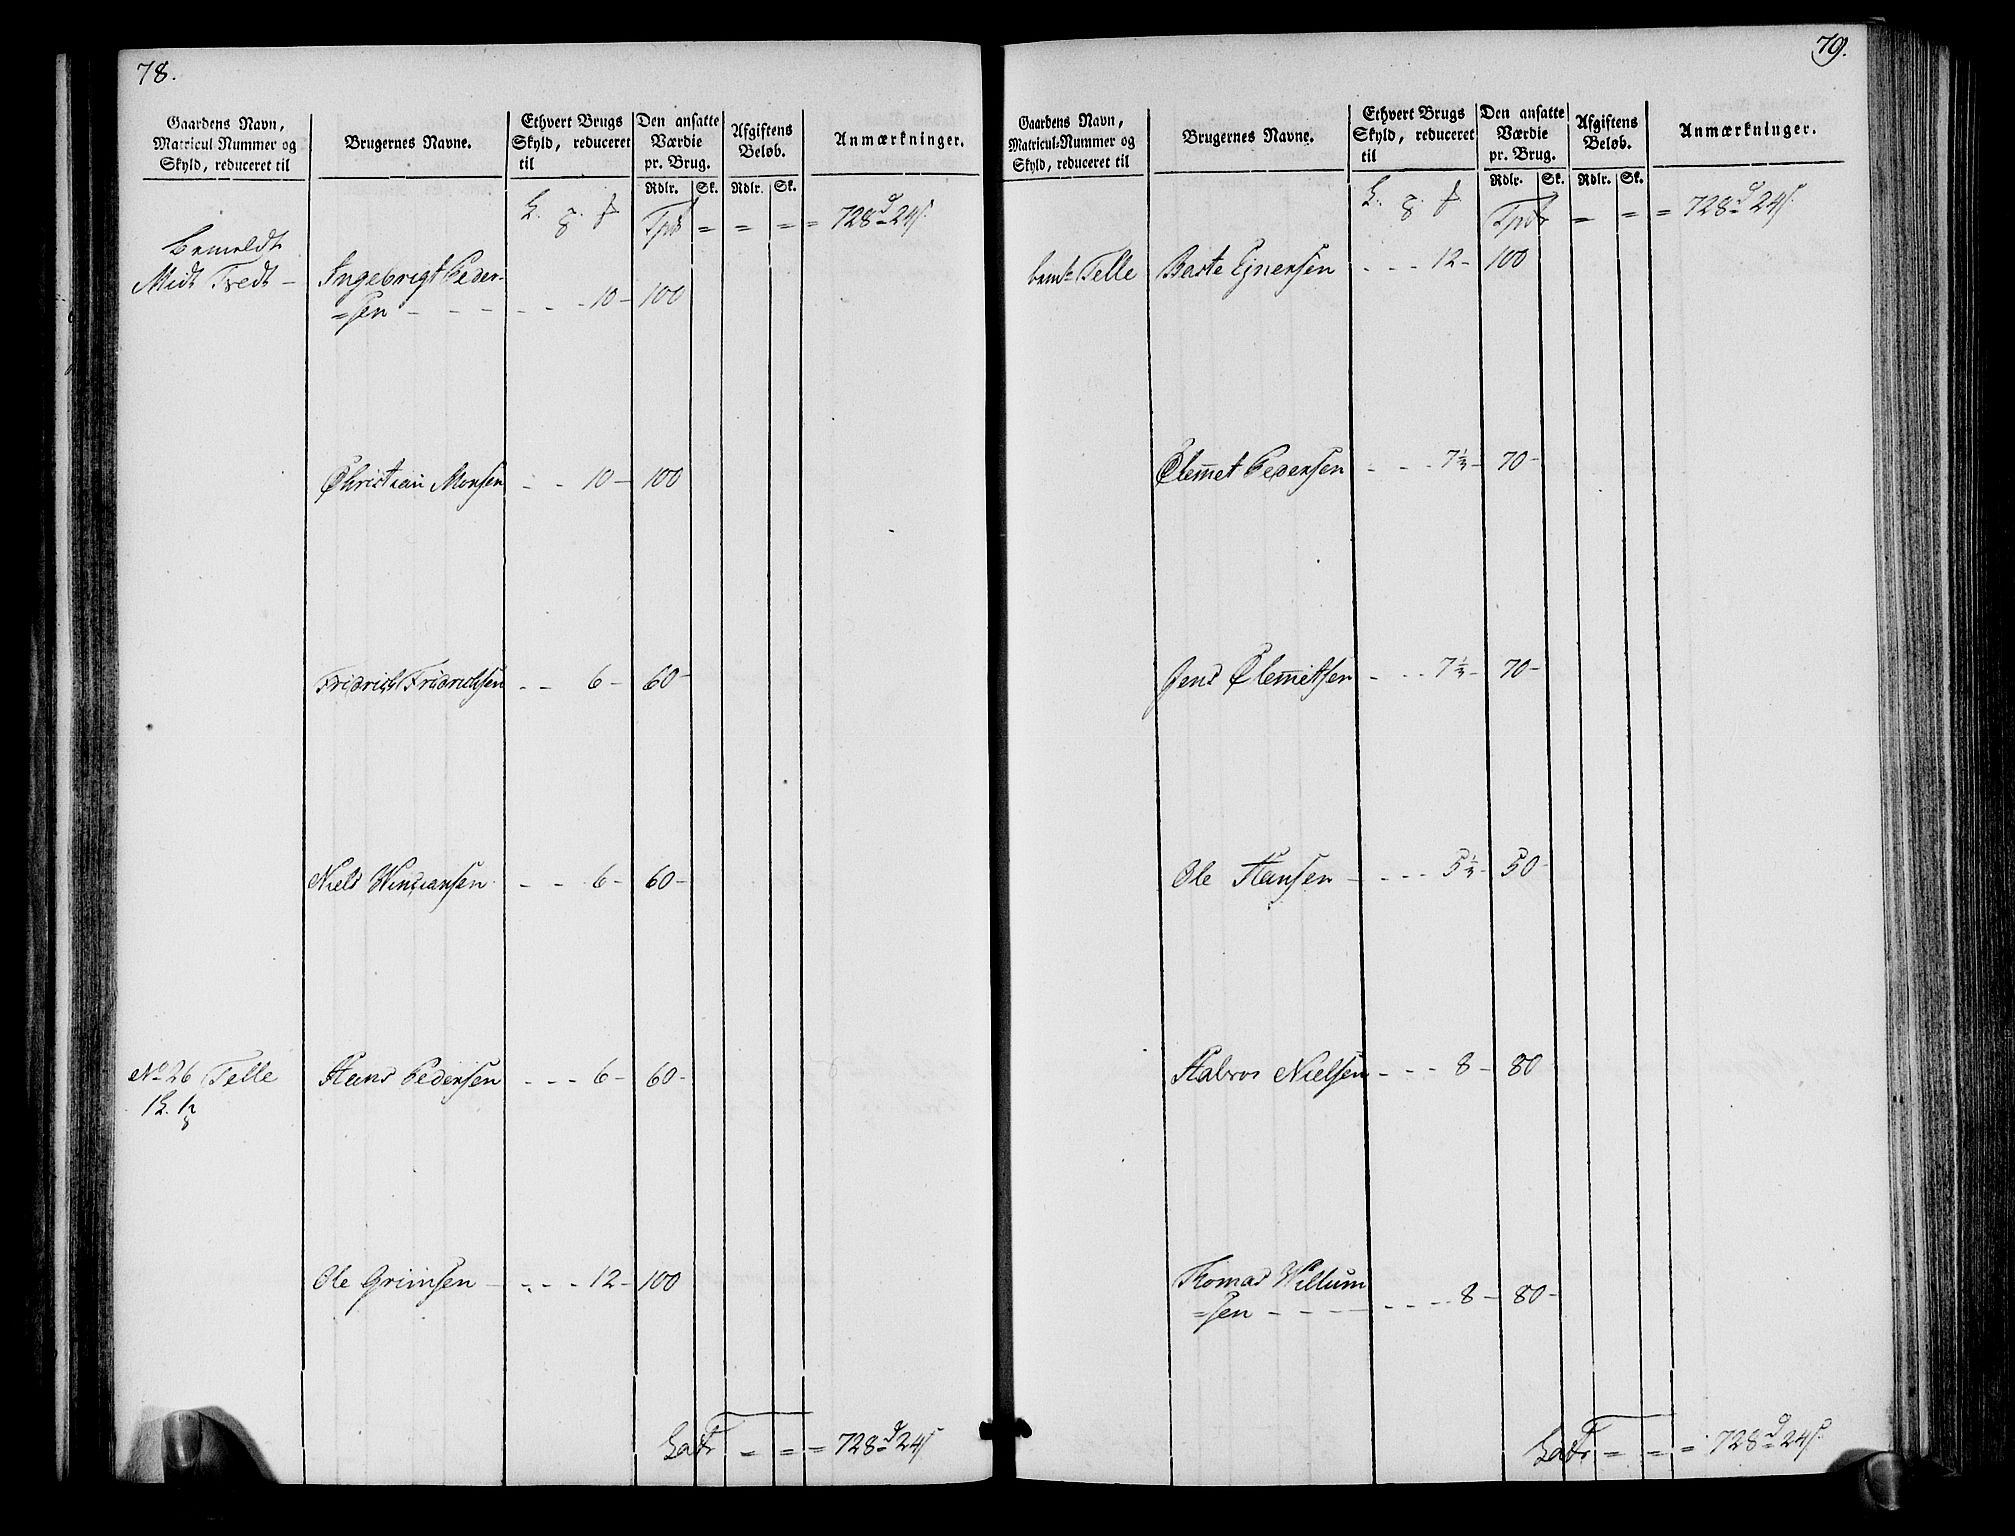 78.
Gaardens Navn, Matricul Nummer og Skyld, reduceret til
Brugernes Navne.
Ethvert Brugs Skyld, reduceret til
Den ansatte Værdie pr. Brug.
Afgiftens Beløb.
Anmærkninger.
Rdlr. Sk. Rdlr. Sk.
Tpt = = = = 728 d 24 s
Bemeldt
Midt Tvedt - Ingebrigt Peder-
=sen - - - - - - - 10 - 100
Christian Monsen - - 10 - 100
Fridrich Fridrichsen - - 6 - 60 -
Niels - - 6 - 60 -
No 26 Telle Hans Pedersen - - - 6 - 60 -
Ole Grimsen - - - - 12 - 100
Latr = = = 728 d 24 s
79.
Gaardens Navn, Matricul-Nummer og Skyld, reduceret til
Brugernes Navne.
Ethvert Brugs Skyld, reduceret til
Den ansatte Værdie pr. Brug.
Afgiftens Beløb.
Anmærkninger.
Rdlr. Sk. Rdlr. Sk.
Tpt = = = 728 d 24 s
bemt Telle Baste Ejnersen - - - 12 - 100
Clemet Pedersen - - - 7½ - 70 -
Jens Clemetsen - - - 7½ - 70 -
Ole Hansen - - - - 5½ - 50 -
Halvor Nielsen - - - 8 - 80
Thomas Willum
=sen - - - - - - - - 8 - 80 -
Latr = = = 728 d 24 s